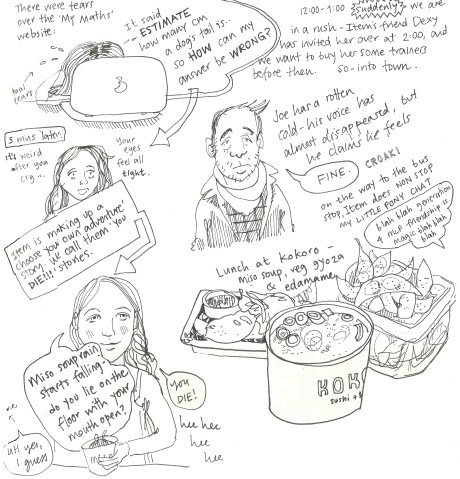 There were tears
over the 'My Maths'
website:
It said
ESTIMATE
how many cm
a dogs tail is..
so HOW can my
answer be WRONG?
real
tears
5 mins later.
it's weird
after you
cry...
Your
eyes
feel all
tight.
Item is making up a
'choose your own adventure'
story. We call them 'YOU
DIE!!!' stories.
Miso soup rain
starts falling-
do you lie on the
floor with your
mouth open?
miso
me
uh yes,
I guess
YOU
DIE!
hee hee
hee
hee
12:00 - 1:00 suddenly we are
in a rush - Item's friend Dexy
has invited her over at 2:00, and
we want to buy her some trainers
before then. so - into town.
Joe has a rotten
cold - his voice has
almost disappeared, but
he claims he feels
FINE.
CROAK!
on the way to the bus
stop, Item does NON STOP
MY LITTLE PONY CHAT
blah blah generation
4 MLP friendship is
magic blah blah
blah
Lunch at Kokoro -
miso soup, veg gyoza
& edamame
KOK
sushi +